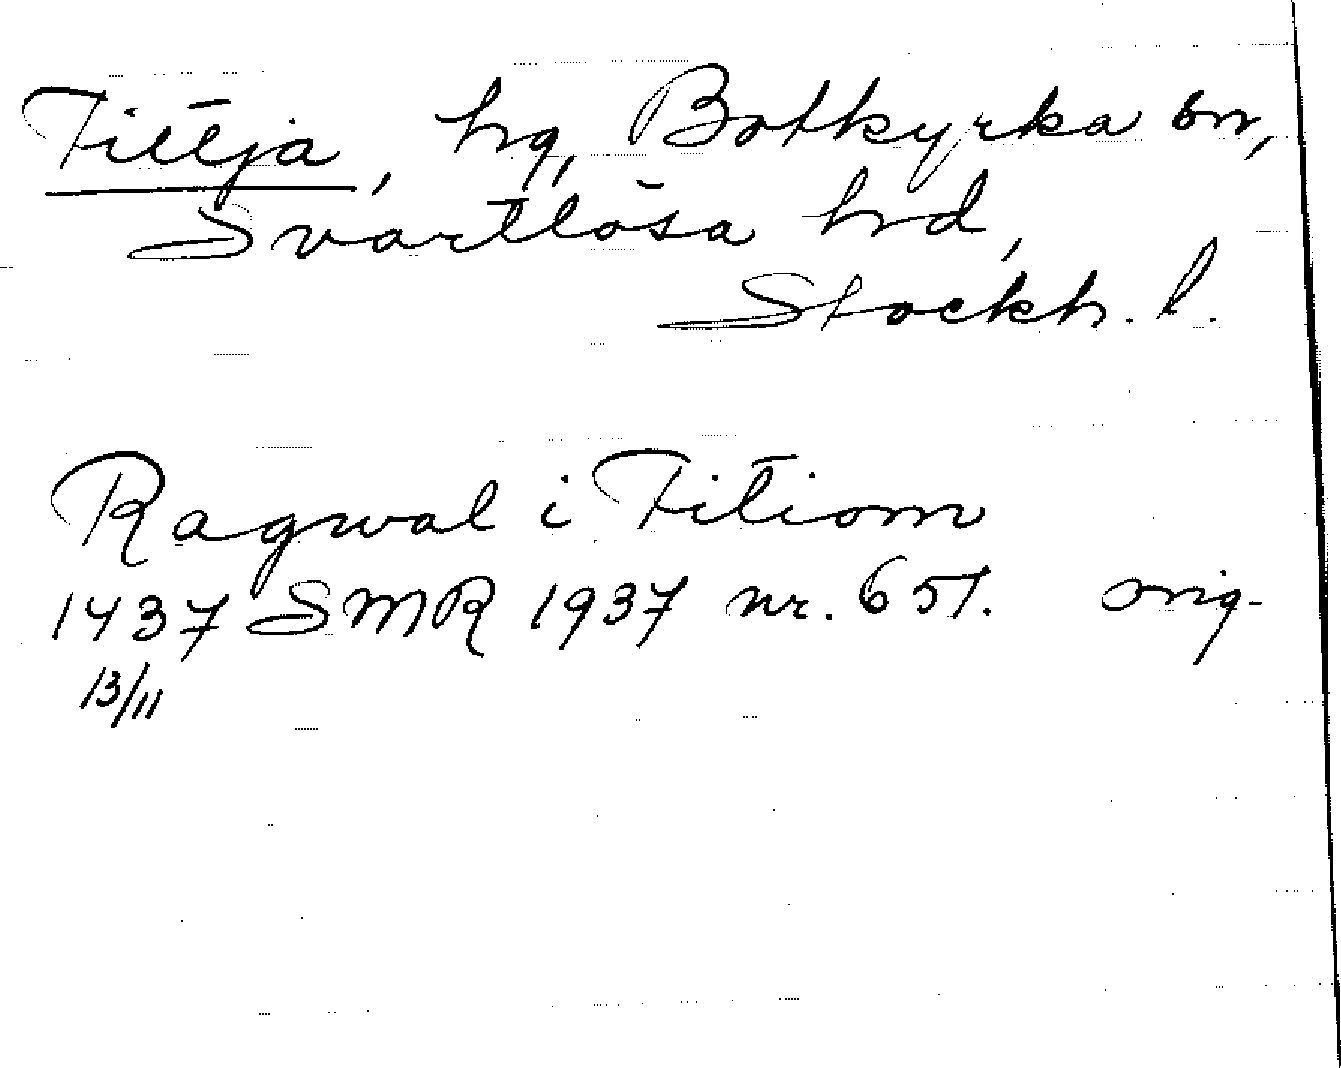 Fittja, hg, Botkyrka sn,
Svartlösa hd,
Stockh. l.
Ragwal i Fitiom
1437 SMR 1937 nr. 651. orig.
13/11